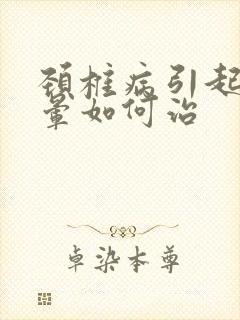 颈椎病引起
晕如何治
卓染本尊